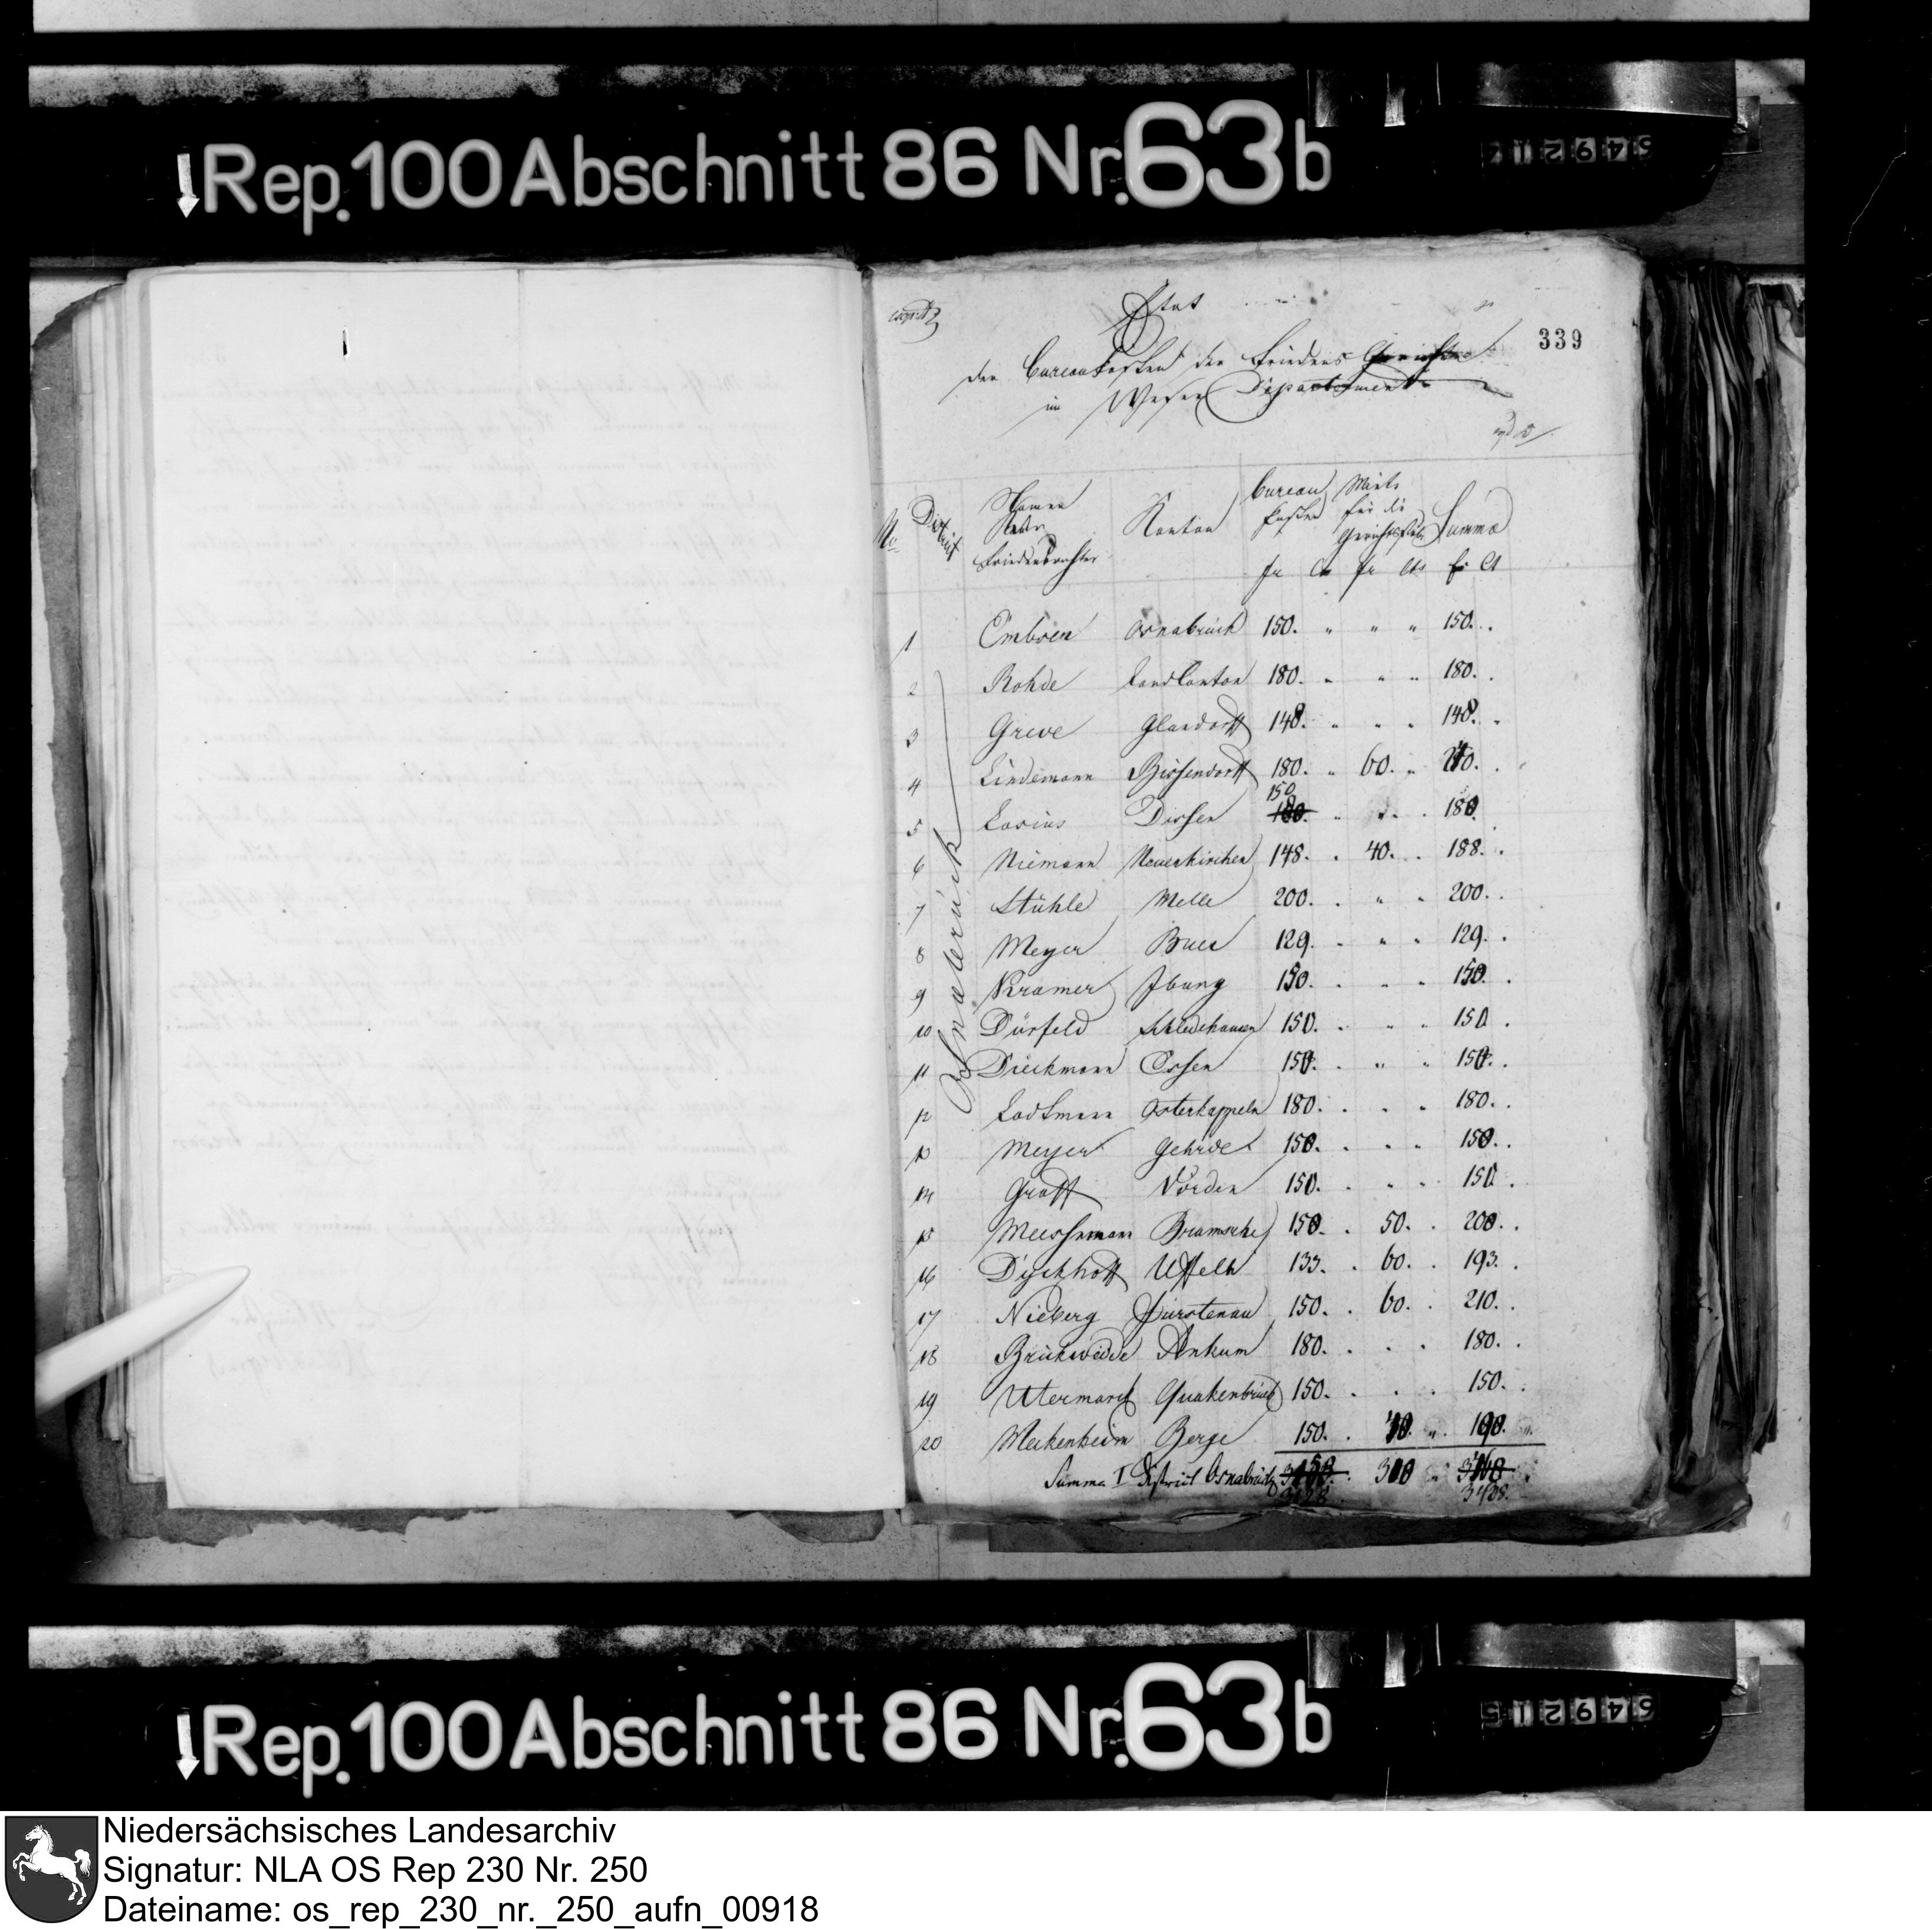 Rep. 100 Abschnitt 86 Nr. 63 b
339
Etat
der Bureaukosten der Friedens Gerichte
im Weser Departement
No District Namen der Friedensrichter Kanton Bureau kosten Miete für die Gerichtsstube Summa
fr Cs fr Cts fr Ct
Osnabrück
1 Embsen Osnabrück 150. " " " 150. .
2 Rohde Landcanton 180. " " " 180. .
3 Greve Glandorff 148. " " " 148. "
4 Lindemann Bissendorff 180. " 60. " 240. .
150
5 Lasius Dissen 180. " " . 180
6 Niemann Neuenkirchen 148. . 40. . 188. .
7 Stühle Melle 200. . " " 200. .
8 Meyer Buer 129. . " " 129. .
9 Kramer Iburg 150. . " " 150. .
10 Dürfeld Schledehausen 150. . " " 150 .
11 Dieckmann Essen 150. . " " 150. .
12 Lodtmann Osterkappeln 180. . . " 180. .
13 Meyer Gehrde 150. . " " 150. .
14 Graff Vörden 150. . " " 150 .
15 Meessmann Bramsche 150. . 50. . 200. .
16 Dyckhoff Uffeln 133. . 60. . 193. .
17 Nieberg Fürstenau 150. . 60. . 210. .
18 Brickwedde Ankum 180. . . . 180. .
19 Utermarck Quakenbrück 150. . . . 150. .
20 Meckenheim Berge 150. . 40. " 190. "
Summa I District Osnabrück 310
3128 3438.
Rep. 100 Abschnitt 86 Nr. 63 b
Niedersächsisches Landesarchiv
Signatur: NLA OS Rep 230 Nr. 250
Dateiname: os_rep_230_nr._250_aufn_00918